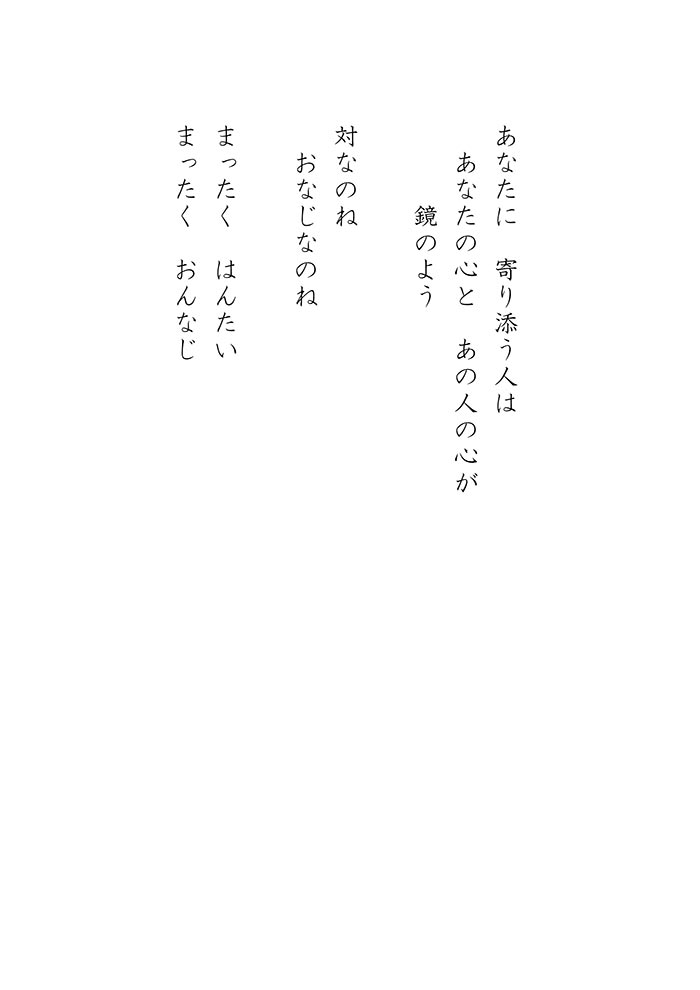 あなたに　寄り添う人は
あなたの心と　あの人の心が
鏡のよう
対なのね
おなじなのね
まったく　はんたい
まったく　おんなじ